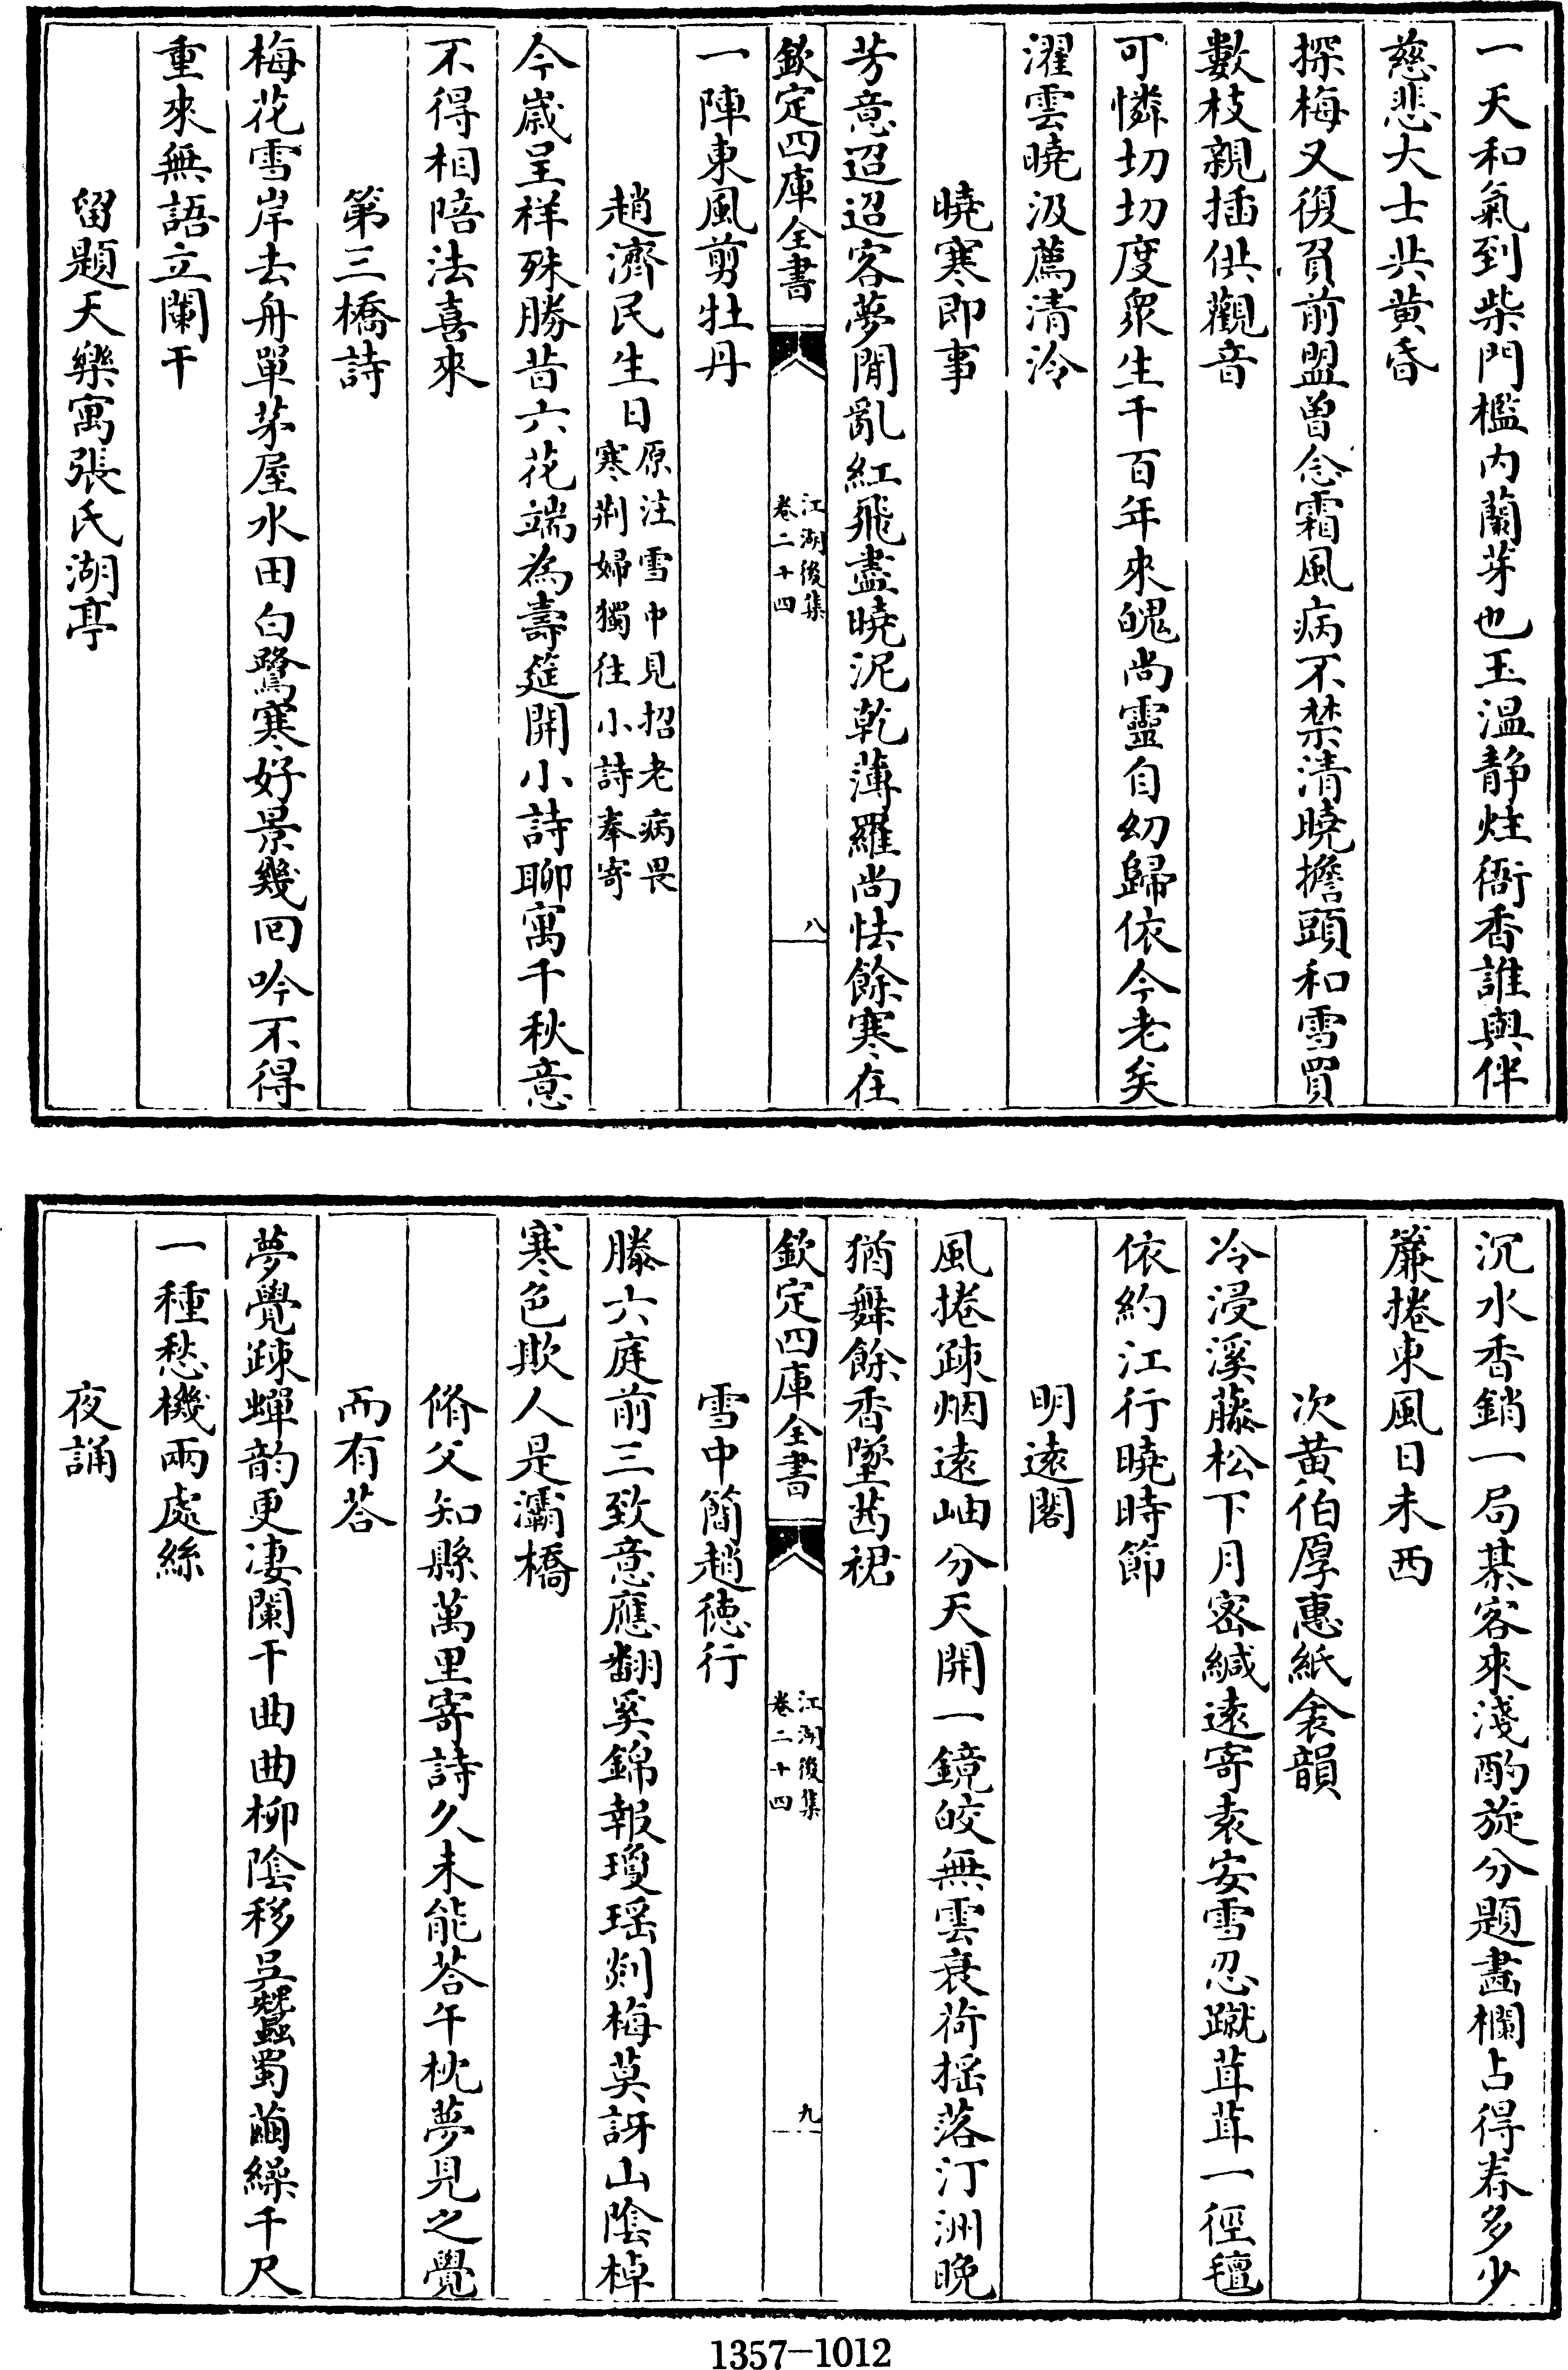 一天和氣到柴門檻内蘭芽也玉温静炷衙香誰與伴
慈悲大士共黄昏
探梅又復負前盟曽念霜風病不禁清曉擔頭和雪買
數枝親插供觀音
可憐切切度衆生千百年來魄尚靈自幼歸依今老矣
濯雲曉汲薦清泠
曉寒即事
芳意迢迢客夢閒亂紅飛盡曉泥乾薄羅尚怯餘寒在
欽定四庫全書
江湖後集
卷二十四
八
一陣東風剪牡丹
趙濟民生日原注雪中見招老病畏
寒荆婦獨往小詩奉寄
今歳呈祥殊勝昔六花端為壽筵開小詩聊寓千秋意
不得相陪法喜來
第三橋詩
梅花雪岸去舟單茅屋水田白鷺寒好景幾回吟不得
重來無語立闌干
留題天樂寓張氏湖亭
沉水香銷一局棊客來淺酌旋分題畵欄占得春多少
簾捲東風日未西
次黄伯厚惠紙衾韻
冷浸溪藤松下月宻緘遠寄袁安雪忍蹴茸茸一徑氊
依約江行曉時節
明遠閣
風捲疎烟遠岫分天開一鏡皎無雲衰荷揺落汀洲晩
猶舞餘香墜茜裙
欽定四庫全書
江湖後集
卷二十四
九
雪中簡趙徳行
滕六庭前三致意應翻奚錦報瓊瑶剡梅莫訝山陰棹
寒色欺人是灞橋
脩父知縣萬里寄詩久未能荅午枕夢見之覺
而有荅
夢覺疎蟬韵更凄闌干曲曲柳陰移吳蠶蜀繭繰千尺
一種愁機兩處絲
夜誦
1357-1012